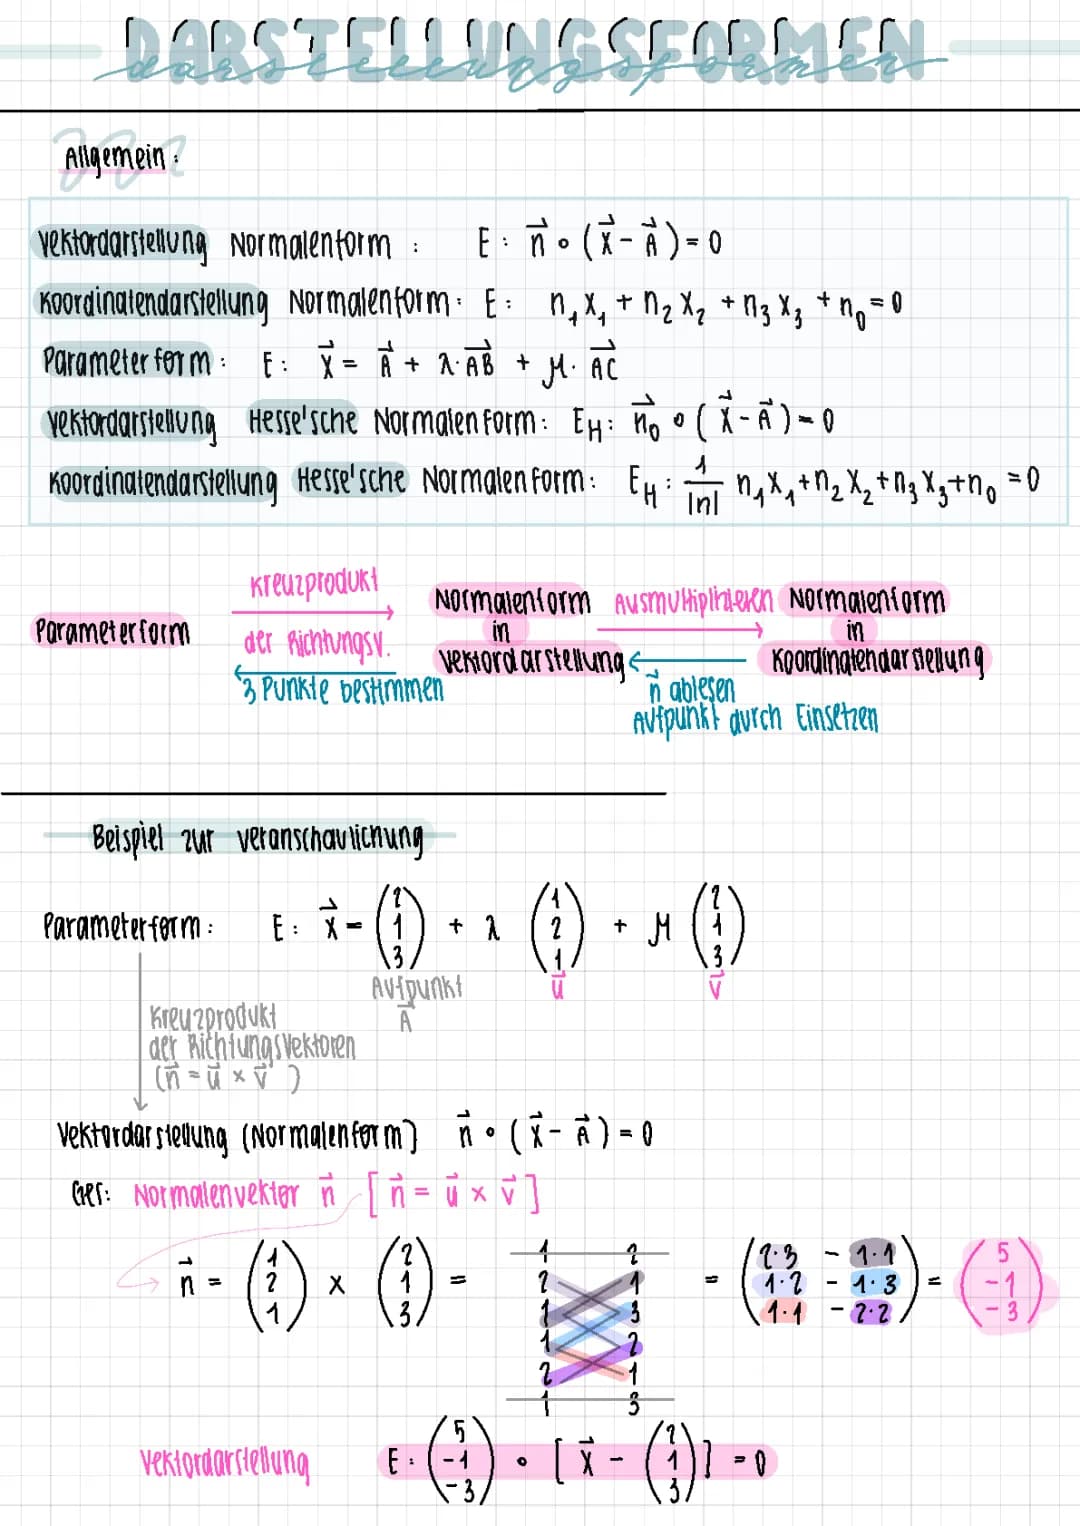 DARSTELLUNGSFORMEN
darstellungsformen
Allgemein:
Vektordarstellung Normalenform : E: n⃗ ∘ (x⃗ - A⃗) = 0
Koordinatendarstellung Normalenform: E: n₁x₁ + n₂x₂ + n₃x₃ + n₀ = 0
Parameterform: E: x⃗ = A⃗ + λ·AB⃗ + μ·AC⃗
Vektordarstellung Hesse'sche Normalenform: E_H: n₀⃗ ∘ (x⃗ - A⃗) = 0
Koordinatendarstellung Hesse'sche Normalenform: E_H: 1/|n| n₁x₁+n₂x₂+n₃x₃+n₀ = 0
Parameterform
Kreuzprodukt
der Richtungsv.
3 Punkte bestimmen
Normalenform
in
Vektordarstellung
Ausmultiplizieren
n⃗ ablesen
Aufpunkt durch Einsetzen
Normalenform
in
Koordinatendarstellung
Beispiel zur Veranschaulichung
Parameterform: E: x⃗ = (2 1 3) + λ (1 2 1) + μ (2 1 3)
Aufpunkt A⃗ u⃗ v⃗
Kreuzprodukt
der Richtungsvektoren
(n⃗ = u⃗ × v⃗)
Vektordarstellung (Normalenform) n⃗ ∘ (x⃗ - A⃗) = 0
Ges: Normalenvektor n⃗ [n⃗ = u⃗ × v⃗]
n⃗ = (1 2 1) × (2 1 3) =
1 2
2 1
1 3
1 2
2 1
1 3
= (2·3 - 1·1
1·2 - 1·3
1·1 - 2·2) = (5 -1 -3)
Vektordarstellung E: (5 -1 -3) ∘ [x⃗ - (2 1 3)] = 0